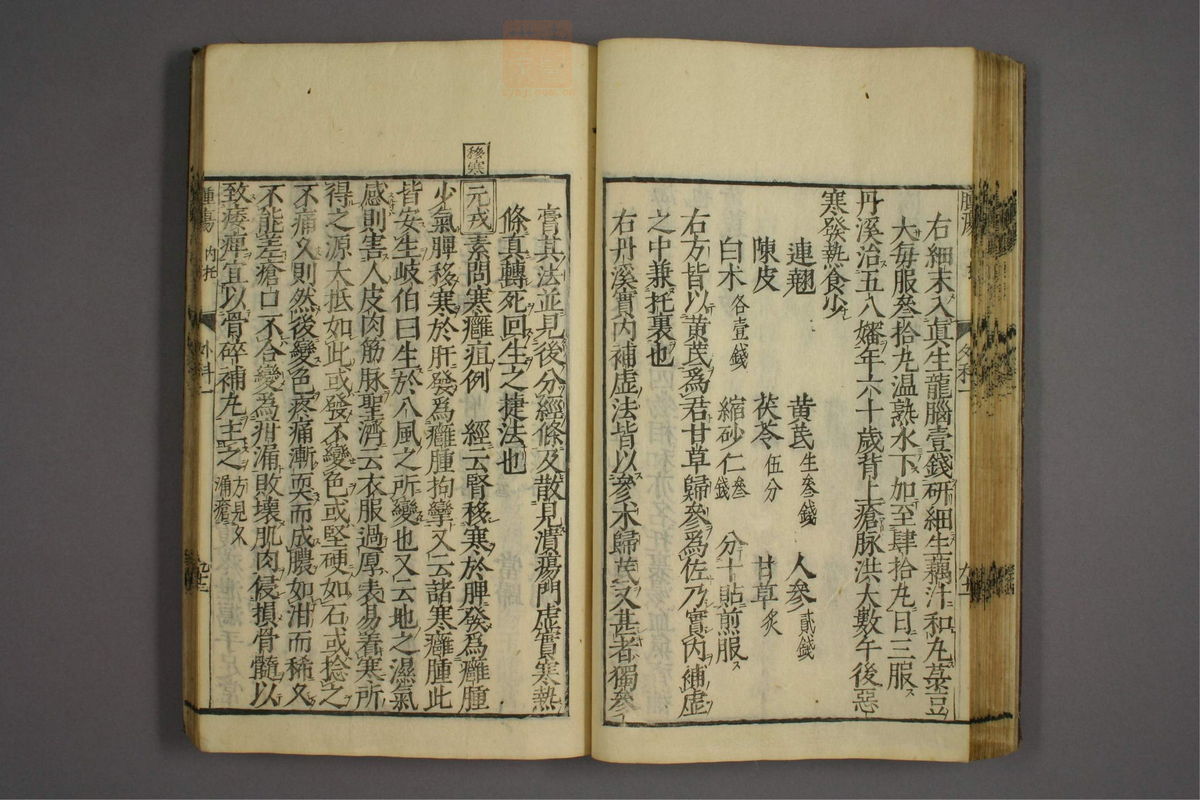 右細末入眞生龍腦壹錢研細生藕汁和丸菉豆
大每服叁拾丸温熟水下加至肆拾丸日三服
丹溪治五八孀年六十歲背上瘡脉洪大數午後惡
寒發熱食少
連翹　黄芪生叁錢　人參貳錢
陳皮　茯苓伍分　甘草炙
白朮各壹錢　縮砂仁叁錢　分十貼煎服
右方皆以黄芪爲君甘草歸參爲佐乃實内補虚
之中兼托裏也
右丹溪實内補虚法皆以參朮歸芪又甚者獨參
膏其法並見後分經條及散見潰瘍門虚實寒熱
條真轉死回生之捷法也
移寒
元戎素問寒癰疽例　經云腎移寒於脾發爲癰腫
少氣脾移寒於肝發爲癰腫拘攣又云諸寒癰腫此
皆安生岐伯曰生於八風之所變也又云地之濕氣
感則害人皮肉筋脉聖濟云衣服過厚表易着寒所
得之源大抵如此或發不變色或堅硬如石或捻之
不痛久則然後變色疼痛漸耎而成膿如泔而稀久
不能差瘡口不合變爲疳漏敗壞肌肉侵損骨髓以
致痿痹宜以骨碎補丸主之方見久漏瘡
腫瘍　内托　外科一